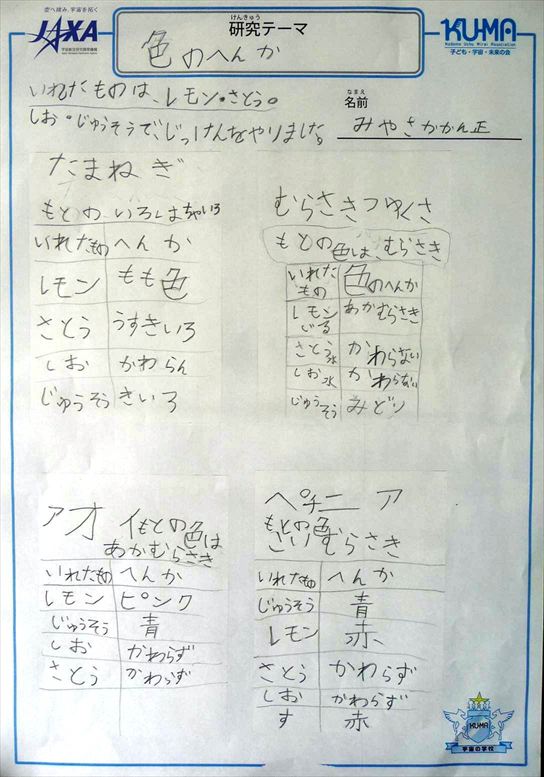 空へ挑み、宇宙を拓く
JAXA
けんきゅう
研究テーマ
色のへんか
KUMA
Kodomo Uchu Mirai Association
子ども・宇宙・未来の会
いれたものは、レモン・さとう。
しお・じゅうそうで、じっけんをやりました。
なまえ
名前
みやさかかん正
たまねぎ
もとのいろはちゃいろ
いれたもの へんか
レモン もも色
さとう うすきいろ
しお かわらん
じゅうそう きいろ
むらさきつゆくさ
もとの色は、むらさき
いれたもの 色のへんか
レモンじる あかむらさき
さとう水 かわらない
しお水 かわらない
じゅうそう みどり
アオイもとの色は
あかむらさき
いれたもの へんか
レモン ピンク
じゅうそう 青
しお かわらず
さとう かわらず
ペチニア
もとの色
こいむらさき
いれたもの へんか
じゅうそう 青
レモン 赤
さとう かわらず
しお かわらず
す 赤
KUMA
宇宙の学校